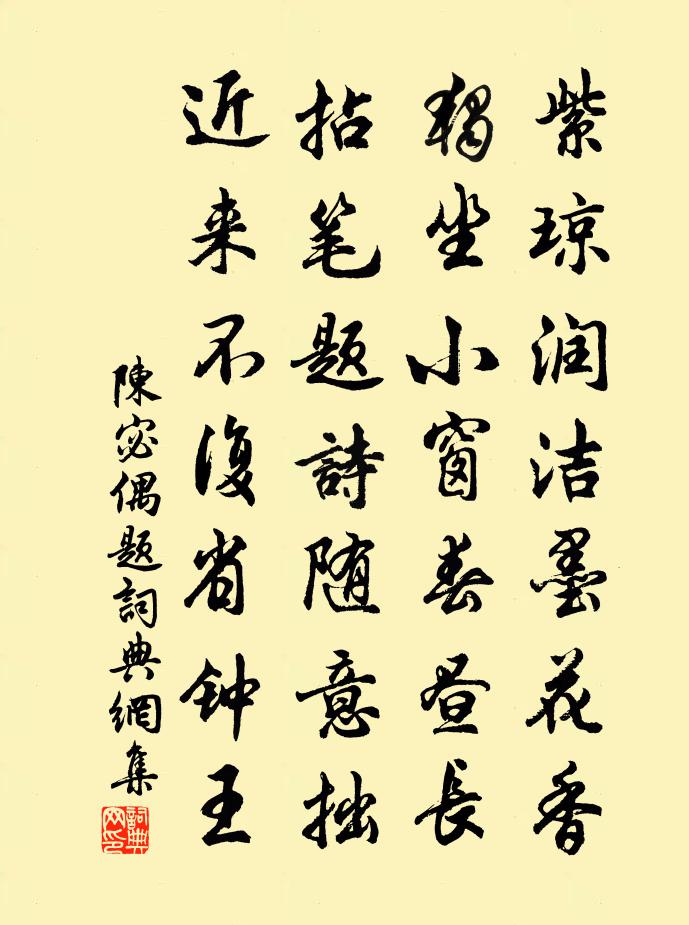 紫琼润洁墨花香
独坐小窗春昼长
拈笔题詩随意拙
近来不復省钟王
陳宓偶题詞典網集
詞典网印